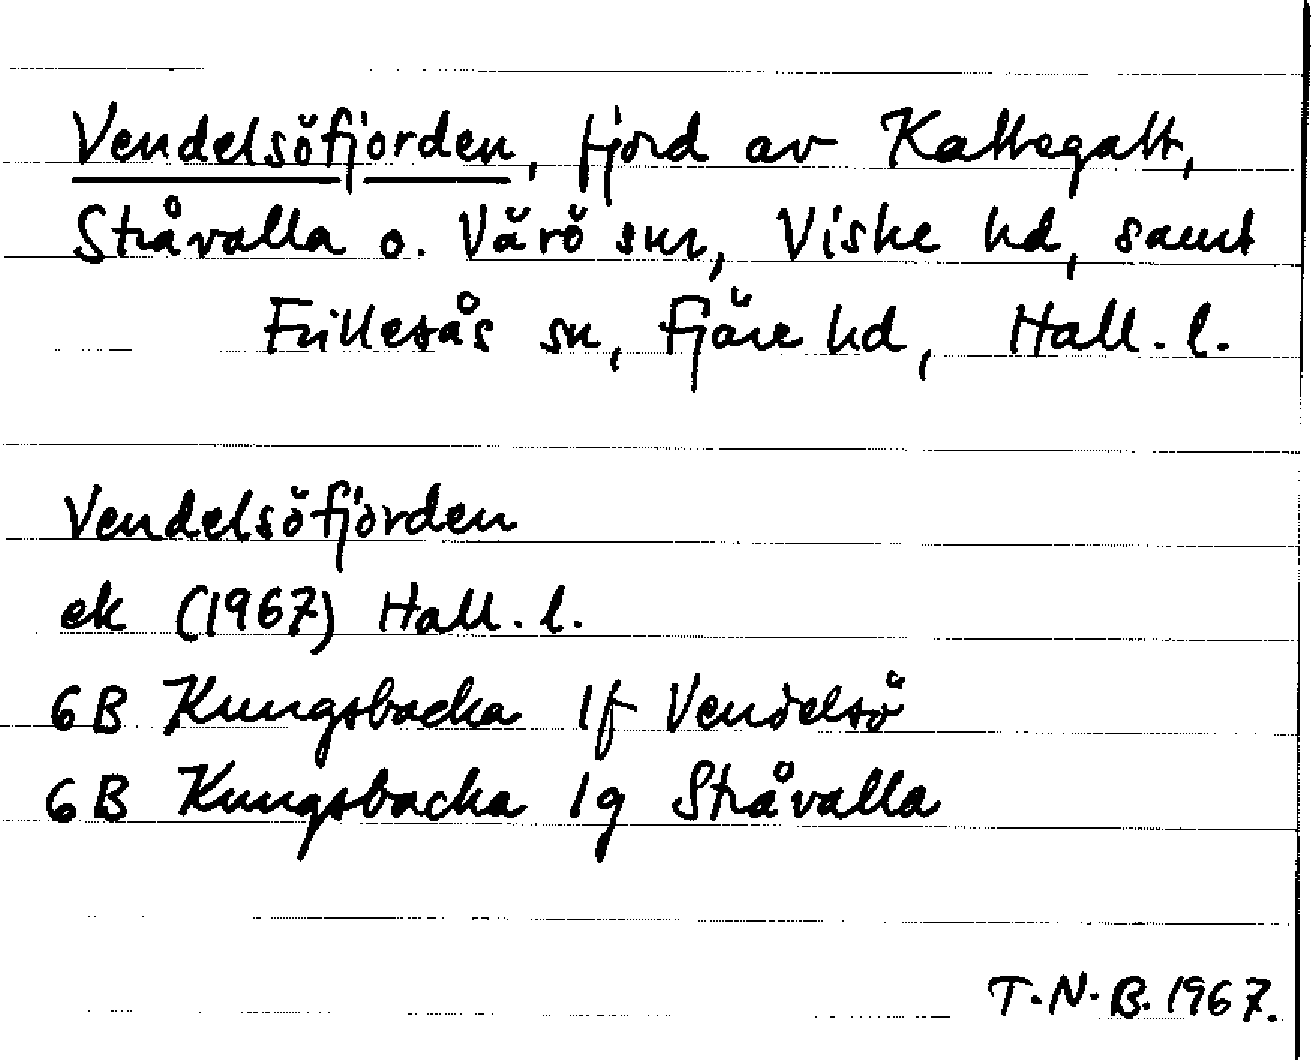 Vendelsöfjorden, fjord av Kattegatt,
Stråvalla o. Värö snr, Viske hd, samt
Frillesås sn, Fjäre hd, Hall. l.
Vendelsöfjorden
ek (1967) Hall. l.
6B Kungsbacka 1f Vendelsö
6B Kungsbacka 1g Stråvalla
T.N.B. 1967.